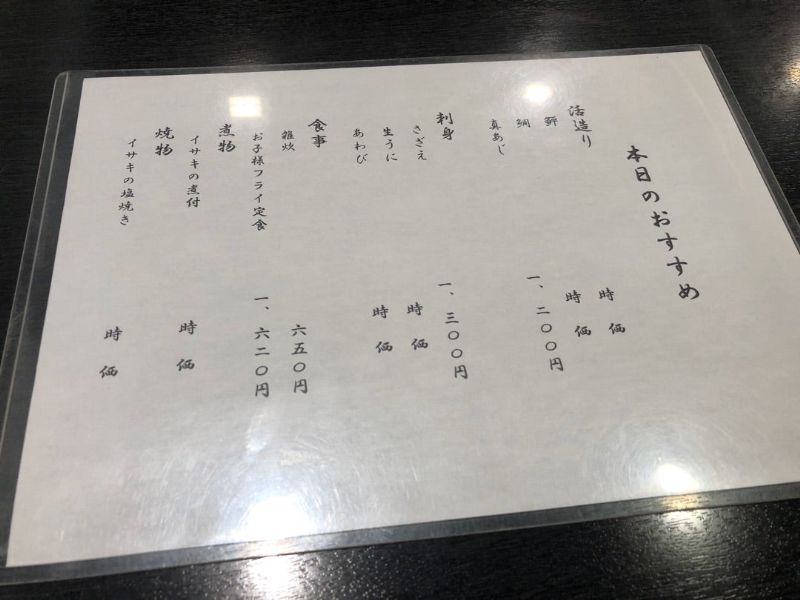 本日のおすすめ
活造り
鮃 時価
鯛 時価
真あじ 一、二〇〇円
刺身
さざえ 一、三〇〇円
生うに 時価
あわび 時価
食事
雑炊 六五〇円
お子様フライ定食 一、六二〇円
煮物
イサキの煮付 時価
焼物
イサキの塩焼き 時価